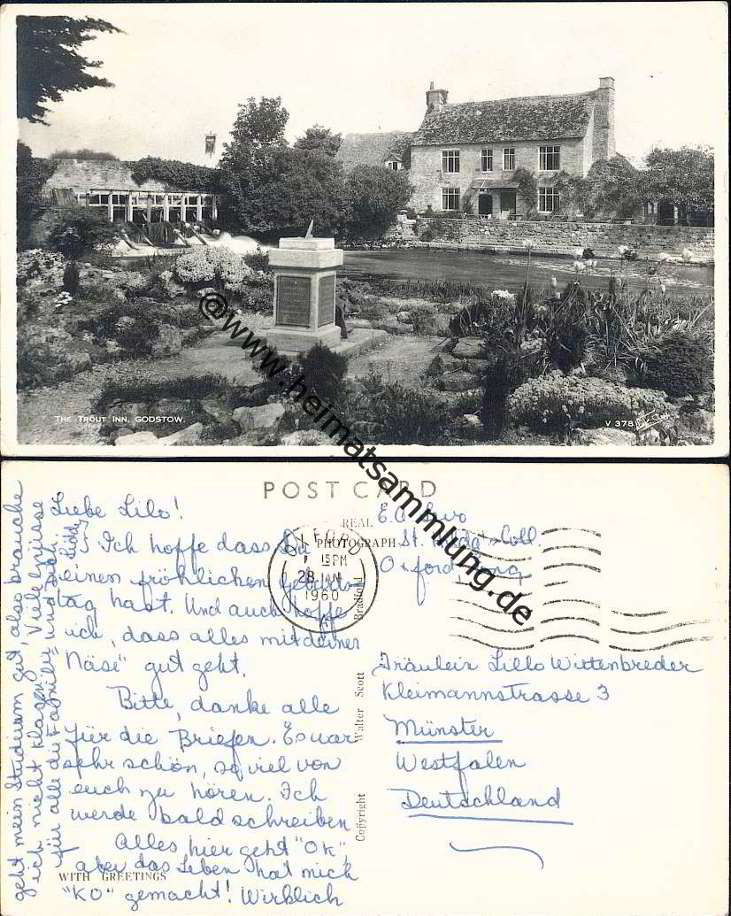 THE TROUT INN, GODSTOW.
V 378
@ www.heimatsammlung.de
POST CARD
REAL
PHOTOGRAPH
Liebe Lilo!
Ich hoffe dass Du
einen fröhlichen Geburts-
tag hast. Und auch hoffe
ich, dass alles mit deiner
"Näse" gut geht.
Bitte, danke alle
für die Briefen. Es war
sehr schön, so viel von
euch zu hören. Ich
werde bald schreiben
Alles hier geht "OK",
aber das Leben hat mich
"KO" gemacht! Wirklich
geht mein Studium gut, also brauche
ich nicht klagen. Viele Grüsse
für alle die Familie und Dich.
WITH GREETINGS
Copyright Walter Scott Bradford
OXFORD
15 PM
28 JAN
1960
St. Coll.
Oxford
Fräulein Lillo Wittenbreder
Kleimannstrasse 3
Münster
Westfalen
Deutschland